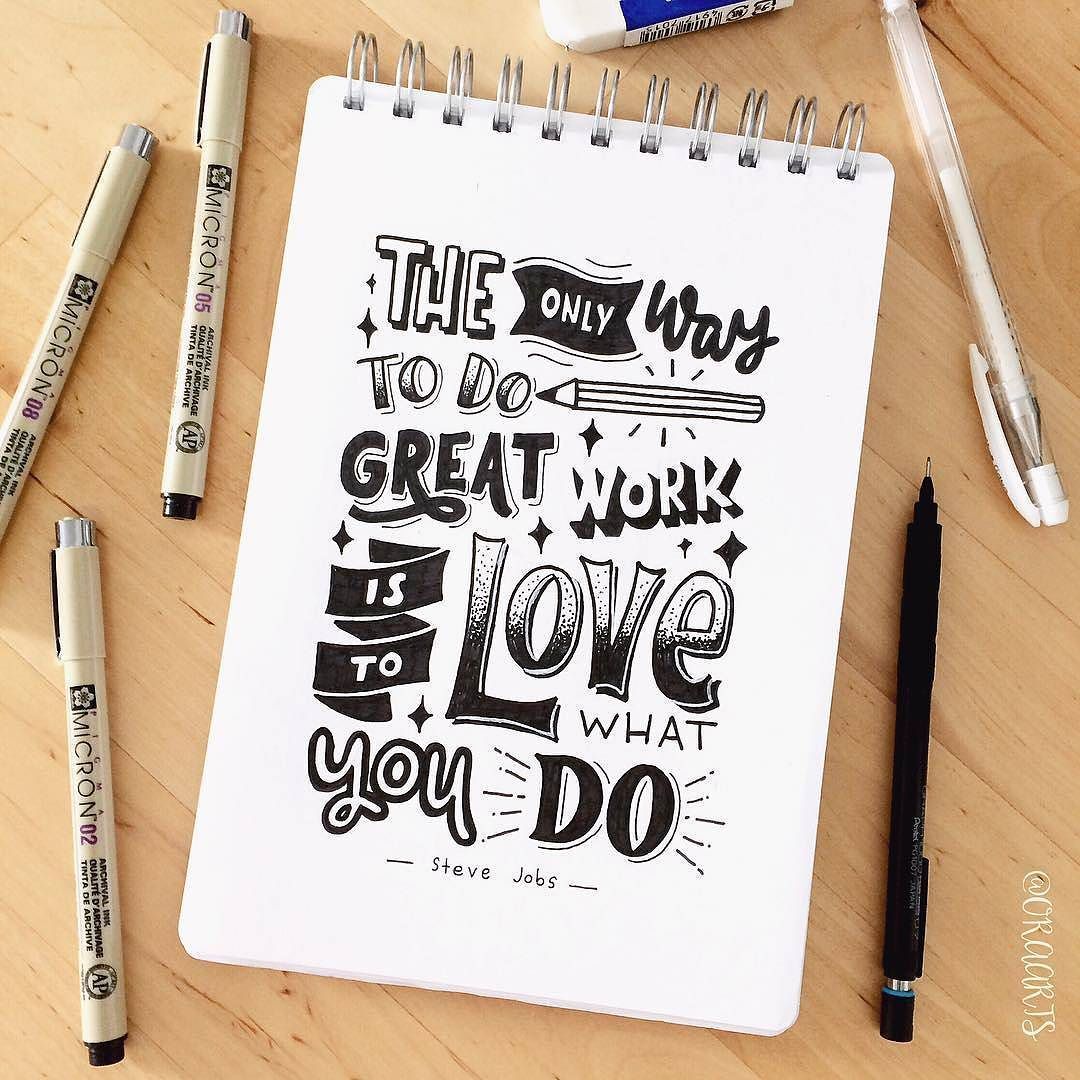 THE ONLY way
TO DO
GREAT WORK
IS
TO
LOVE
WHAT
you DO
— Steve Jobs —
MICRON 05
ARCHIVAL INK
QUALITÉ D'ARCHIVAGE
TINTA DE ARCHIVE
AP
MICRON 08
ARCHIVAL INK
QUALITÉ D'ARCHIVAGE
TINTA DE ARCHIVE
MICRON 02
ARCHIVAL INK
QUALITÉ D'ARCHIVAGE
TINTA DE ARCHIVE
AP
@CRAARTS